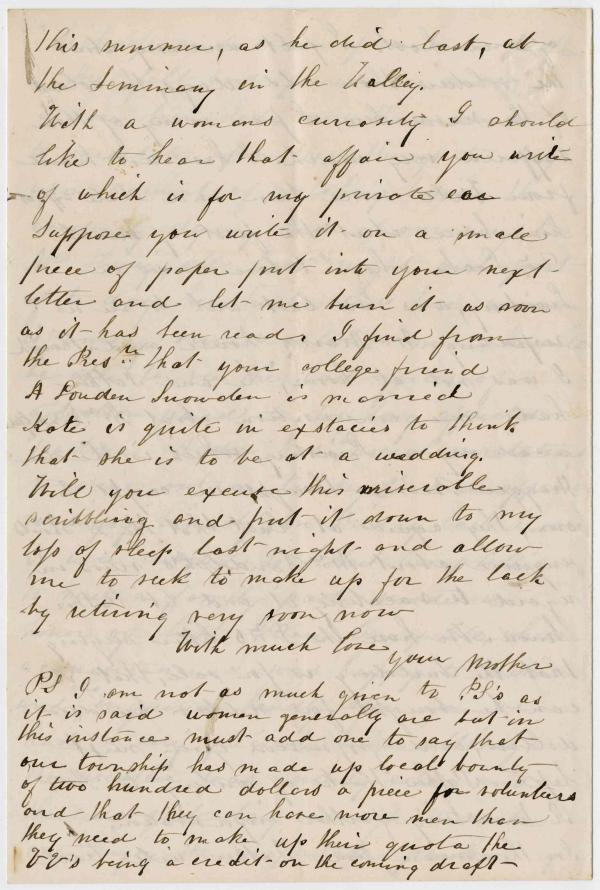 this summer, as he did last, at
the Seminary in the Valley.
With a womans curiosity I should
like to hear that affair you write
of which is for my private ear
Suppose you write it on a smale
piece of paper put into your next
letter and let me burn it as soon
as it has been read. I find from
the that your college friend
A Louden Snowden is married
Kate is quite in exstacies to think
that she is to be at a wedding.
Will you excuse this miserable
scribbling and put it down to my
loss of sleep last night and allow
me to seek to make up for the lack
by retiring very soon now
With much love
your Mother
PS I am not as much given to PS's as
it is said women generally are but in
this instance must add one to say that
our township has made up local bounty
of two hundred dollars a piece for volunteers
and that they can have more men than
they need to make up their quota the
VV's being a credit on the coming draft